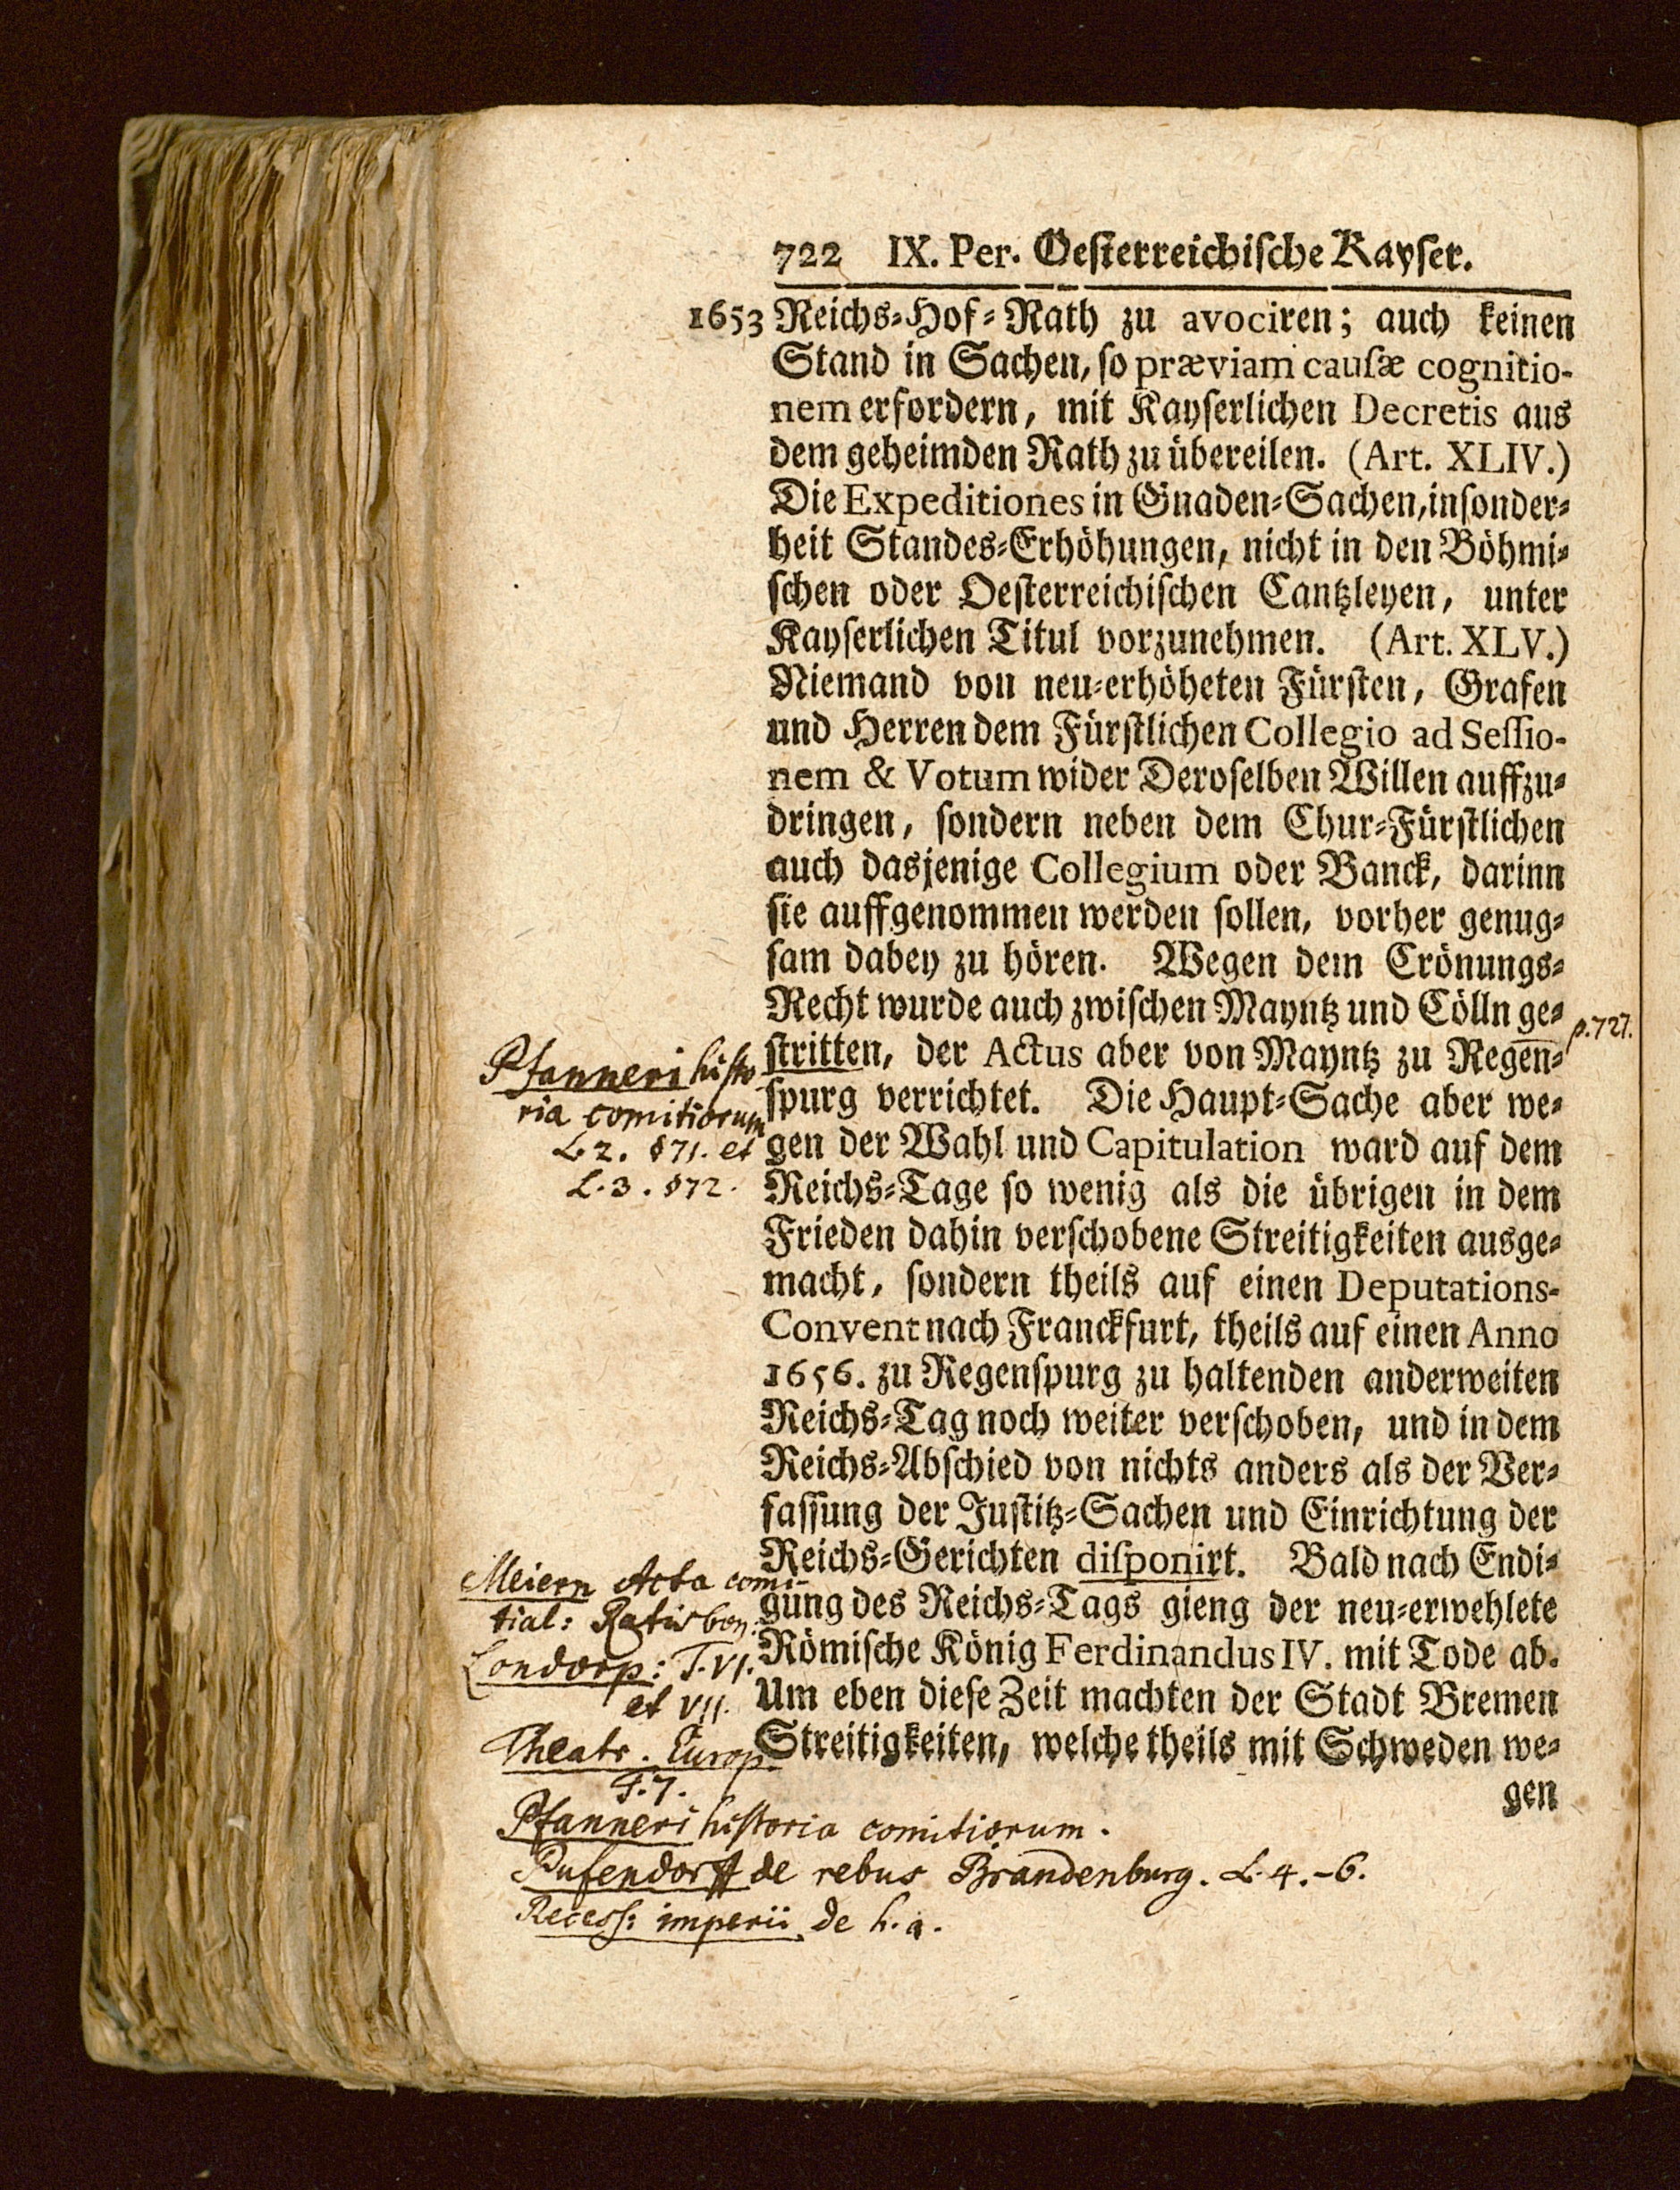 722 IX. Per. Oesterreichische Kayser.
1653 Reichs-Hof-Rath zu avociren; auch keinen
Stand in Sachen, so præviam causæ cognitio-
nem erfordern, mit Kayserlichen Decretis aus
dem geheimden Rath zu übereilen. (Art. XLIV.)
Die Expeditiones in Gnaden-Sachen, insonder-
heit Standes-Erhöhungen, nicht in den Böhmi-
schen oder Oesterreichischen Cantzleyen, unter
Kayserlichen Titul vorzunehmen. (Art. XLV.)
Niemand von neu-erhöheten Fürsten, Grafen
und Herren dem Fürstlichen Collegio ad Sessio-
nem & Votum wider Deroselben Willen auffzu-
dringen, sondern neben dem Chur-Fürstlichen
auch dasjenige Collegium oder Banck, darinn
sie auffgenommen werden sollen, vorher genug-
sam dabey zu hören. Wegen dem Crönungs-
Recht wurde auch zwischen Mayntz und Cölln ge-
p. 727.
stritten, der Actus aber von Mayntz zu Regen-
spurg verrichtet. Die Haupt-Sache aber we-
gen der Wahl und Capitulation ward auf dem
Reichs-Tage so wenig als die übrigen in dem
Frieden dahin verschobene Streitigkeiten ausge-
macht, sondern theils auf einen Deputations-
Convent nach Franckfurt, theils auf einen Anno
1656. zu Regenspurg zu haltenden anderweiten
Reichs-Tag noch weiter verschoben, und in dem
Reichs-Abschied von nichts anders als der Ver-
fassung der Justitz-Sachen und Einrichtung der
Reichs-Gerichten disponirt. Bald nach Endi-
gung des Reichs-Tags gieng der neu-erwehlete
Römische König Ferdinandus IV. mit Tode ab.
Um eben diese Zeit machten der Stadt Bremen
Streitigkeiten, welche theils mit Schweden we-
gen
Pfanneri histo
ria comitiorum
L. 2. §71. et
L. 3. §72.
Meiern Acta comi-
tial: Ratisbon:
Londorp: T. VI.
et VII.
Theatr. Europ.
T. 7.
Pfanneri historia comitiorum.
Pufendorff de rebus Brandenburg. L. 4.-6.
Recess: imperii de h. a.